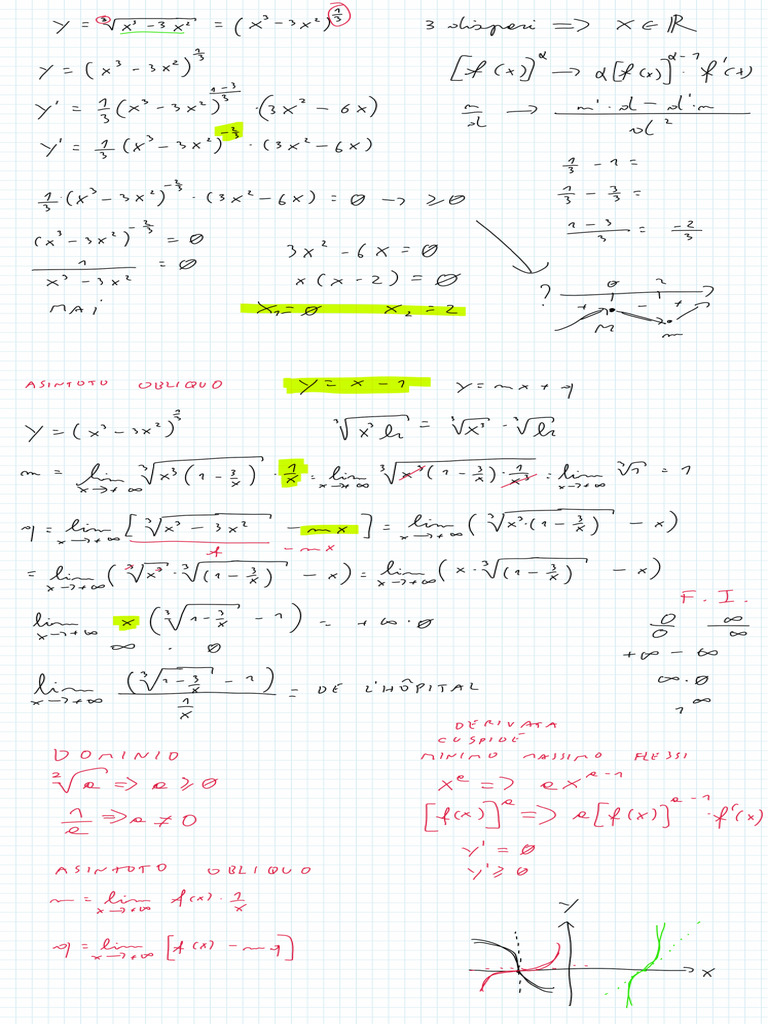 y = ∛(x³ − 3x²) = (x³ − 3x²)^(1/3)    3 dispari ⟹ x ∈ ℝ
y = (x³ − 3x²)^(1/3)    [f(x)]^α → α[f(x)]^(α−1) · f'(x)
y' = 1/3 (x³ − 3x²)^((1−3)/3) · (3x² − 6x)    n/d → (n'·d − d'·n)/d²
y' = 1/3 (x³ − 3x²)^(−2/3) · (3x² − 6x)
1/3 − 1 =
1/3 · (x³ − 3x²)^(−2/3) · (3x² − 6x) = 0 → ≥ 0    1/3 − 3/3 =
(1−3)/3 = −2/3
(x³ − 3x²)^(−2/3) = 0    3x² − 6x = 0
1/(x³ − 3x²) = 0    x(x − 2) = 0    ? 0 2
MAI    x₁ = 0    x₂ = 2    + − +
M m
ASINTOTO OBLIQUO    y = x − 1    y = mx + q
y = (x³ − 3x²)^(1/3)    ∛(x³ b) = ∛x³ · ∛b
m = lim x→+∞ ∛(x³(1 − 3/x)) · 1/x = lim x→+∞ ∛(x³(1 − 3/x) · 1/x³) = lim x→+∞ ∛1 = 1
q = lim x→+∞ [∛(x³ − 3x²) − mx] = lim x→+∞ (∛(x³·(1 − 3/x)) − x)
f − mx
= lim x→+∞ (∛x³ · ∛(1 − 3/x) − x) = lim x→+∞ (x · ∛(1 − 3/x) − x)
F. I.
lim x→+∞ x (∛(1 − 3/x) − 1) = +∞ · 0    0/0    ∞/∞
∞ · 0    +∞ − ∞
∞ · 0
lim x→+∞ (∛(1 − 3/x) − 1) / (1/x) = DE L'HÔPITAL    1^∞
DERIVATA
CUSPIDE
DOMINIO    MINIMO MASSIMO FLESSI
²√a ⟹ a ≥ 0    x^a ⟹ a x^(a−1)
1/a ⟹ a ≠ 0    [f(x)]^a ⟹ a[f(x)]^(a−1) · f'(x)
y' = 0
ASINTOTO OBLIQUO    y' ≥ 0
m = lim x→+∞ f(x) · 1/x
q = lim x→+∞ [f(x) − mq]
y
x